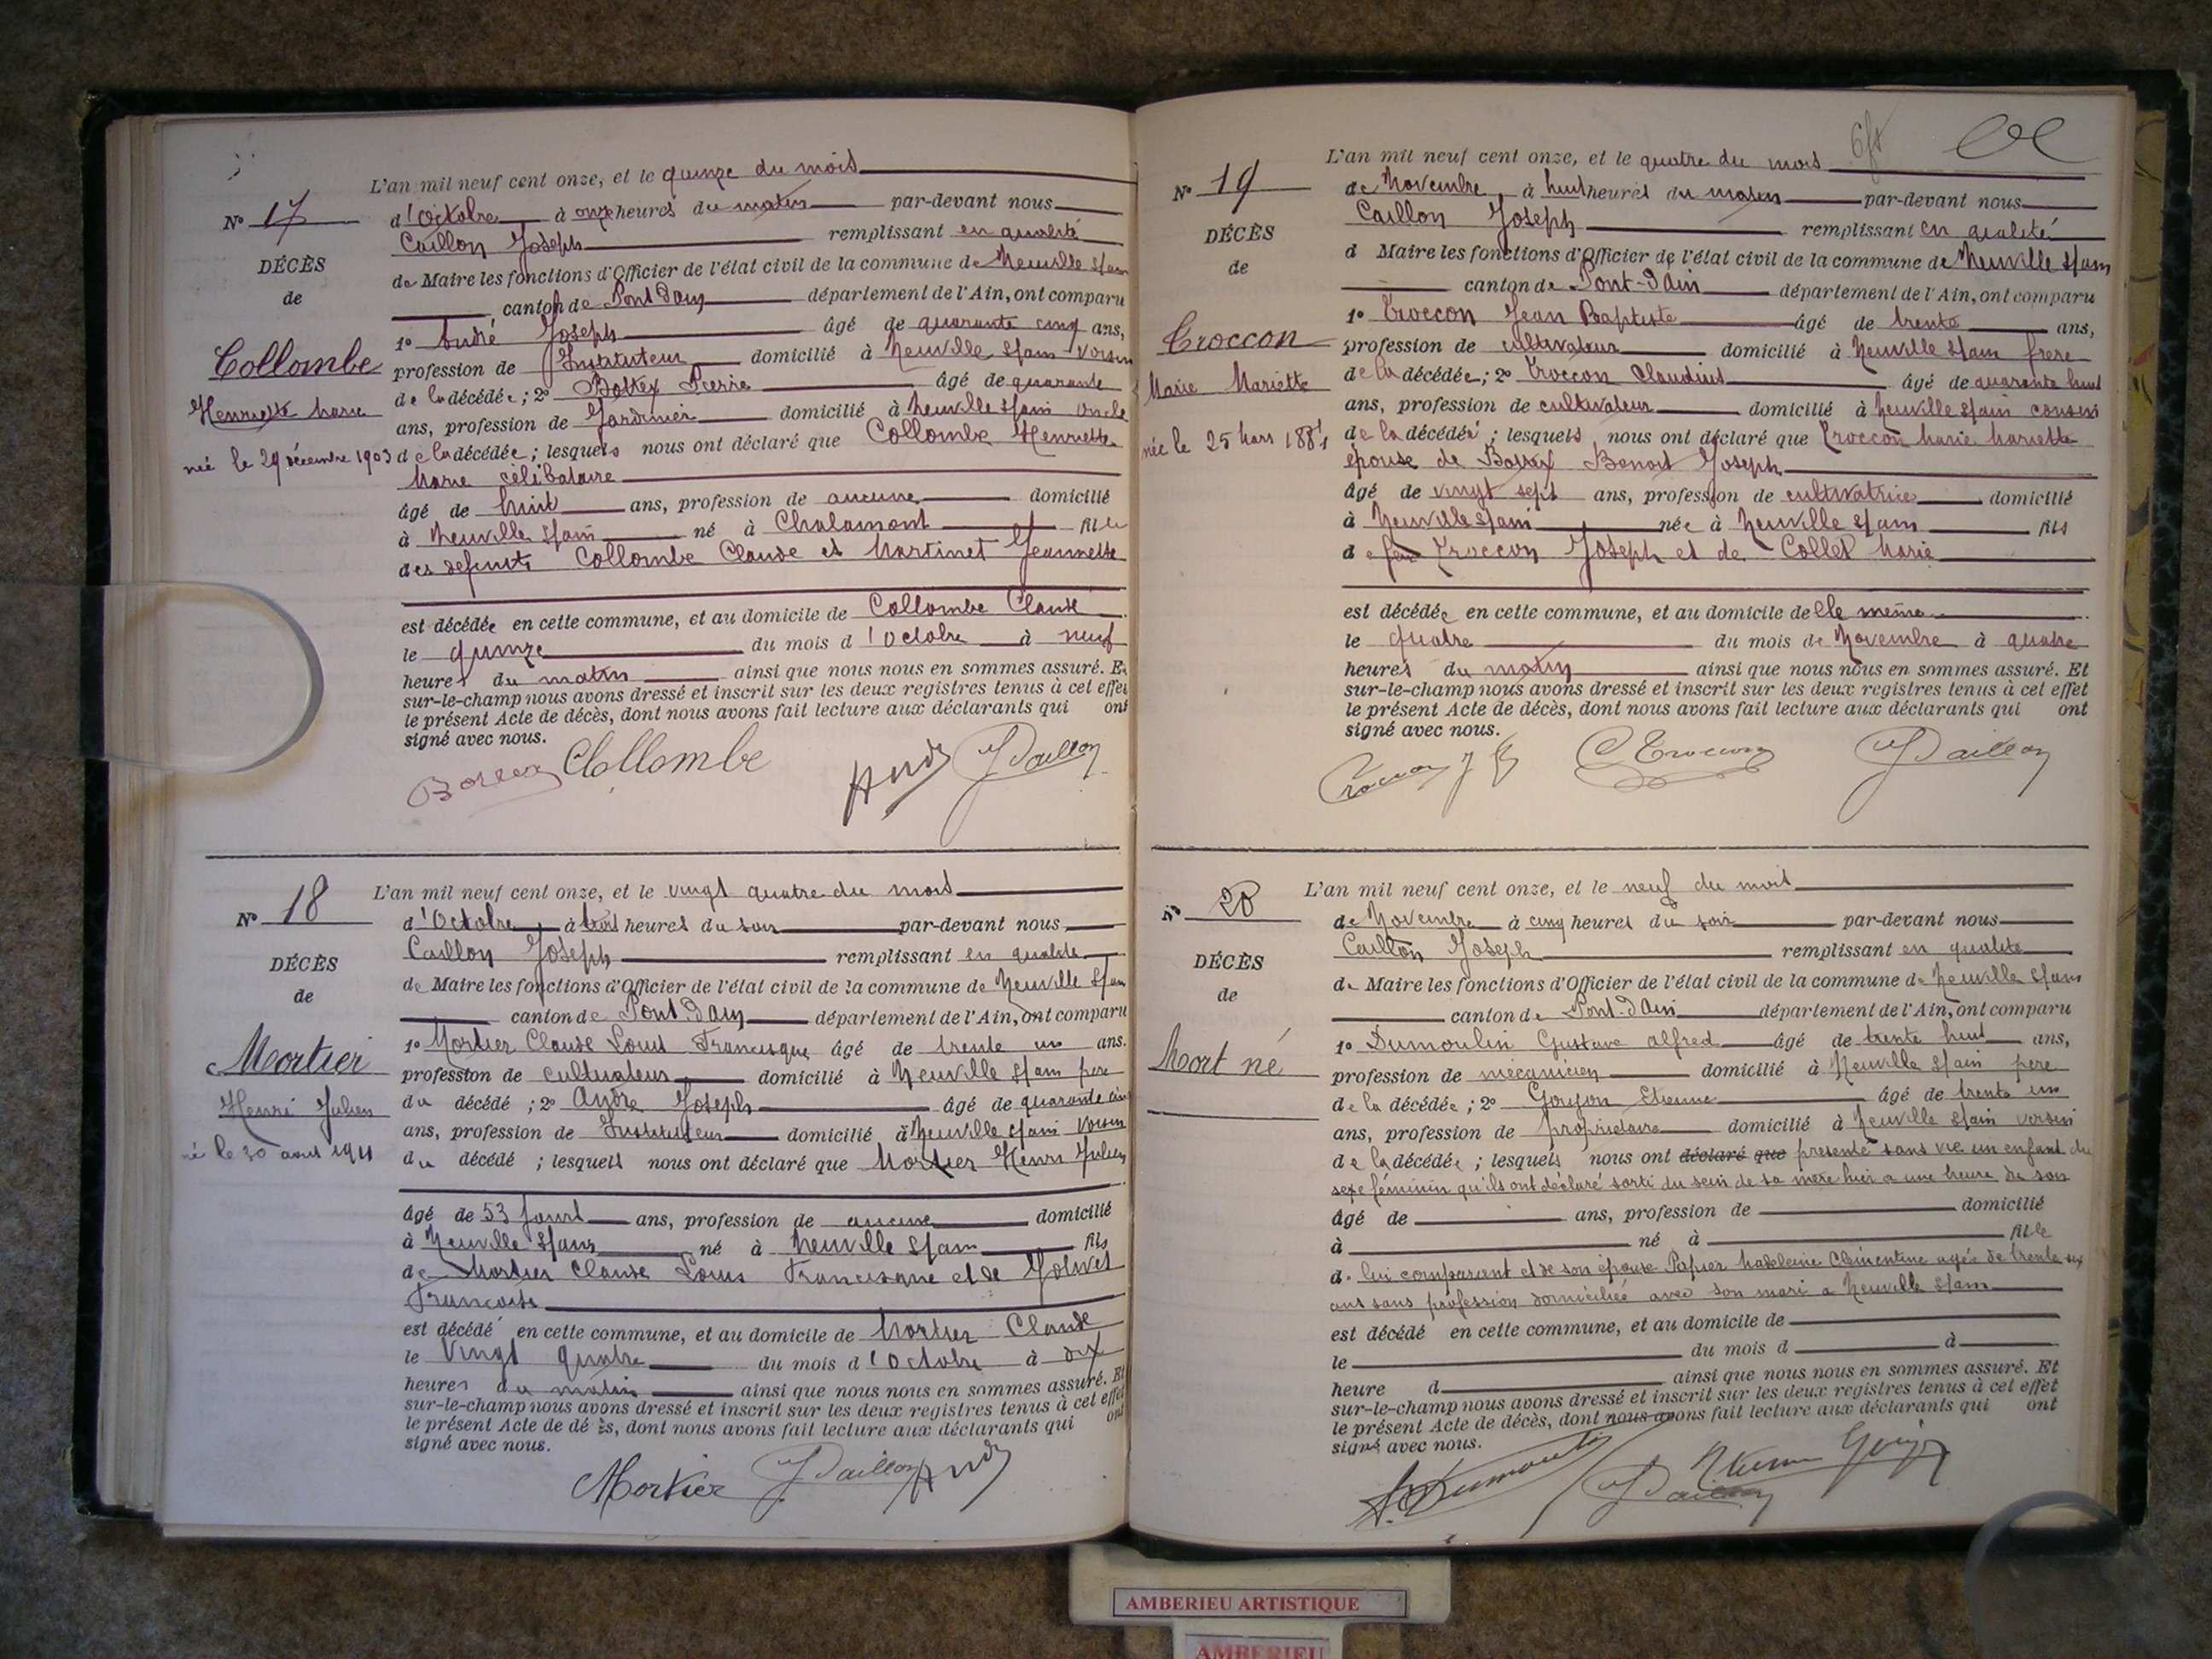 L'an mil neuf cent onze, et le quinze du mois
N° 17
d'Octobre à onze heures du matin par-devant nous
Caillon Joseph remplissant en qualité
DÉCÈS
de Maire les fonctions d'Officier de l'état civil de la commune de Neuville s/ain
de
canton de Pont d'ain département de l'Ain, ont comparu
1° André Joseph âgé de quarante cinq ans,
Collombe
profession de Instituteur domicilié à Neuville s/ain voisin
de la décédée ; 2° Pierre âgé de quarante
Henriette Marie
ans, profession de Jardinier domicilié à Neuville s/ain oncle
né le 29 décembre 1903
de la décédée ; lesquels nous ont déclaré que Collombe Henriette
Marie célibataire
âgé de huit ans, profession de aucune domicilié
à Neuville s/ain né à Chalamont fille
des defunts Collombe Claude et Martinet Jeannette
est décédée en cette commune, et au domicile de Collombe Claude
le quinze du mois d'Octobre à neuf
heures du matin ainsi que nous nous en sommes assuré. Et
sur-le-champ nous avons dressé et inscrit sur les deux registres tenus à cet effet
le présent Acte de décès, dont nous avons fait lecture aux déclarants qui ont
signé avec nous.
Collombe André J Caillon
L'an mil neuf cent onze, et le vingt quatre du mois
N° 18
d'Octobre à trois heures du soir par-devant nous
Caillon Joseph remplissant en qualité
DÉCÈS
de Maire les fonctions d'Officier de l'état civil de la commune de Neuville s/ain
de
canton de Pont d'ain département de l'Ain, ont comparu
1° Mortier Claude Louis Francisque âgé de trente un ans.
Mortier
profession de cultivateur domicilié à Neuville s/ain père
Henri Julien
du décédé ; 2° André Joseph âgé de quarante cinq
ans, profession de Instituteur domicilié à Neuville s/ain voisin
né le 30 aout 1911
du décédé ; lesquels nous ont déclaré que Mortier Henri Julien
âgé de 53 jours ans, profession de aucune domicilié
à Neuville s/ain né à Neuville s/ain fils
de Mortier Claude Louis Francisque et de Jolivet
Francoise
est décédé en cette commune, et au domicile de Mortier Claude
le Vingt quatre du mois d'Octobre à dix
heures du matin ainsi que nous nous en sommes assuré. Et
sur-le-champ nous avons dressé et inscrit sur les deux registres tenus à cet effet
le présent Acte de décès, dont nous avons fait lecture aux déclarants qui ont
signé avec nous.
Mortier J Caillon André
L'an mil neuf cent onze, et le quatre du mois
N° 19
de Novembre à huit heures du matin par-devant nous
Caillon Joseph remplissant en qualité
DÉCÈS
d Maire les fonctions d'Officier de l'état civil de la commune de Neuville s/ain
de
canton de Pont-d'ain département de l'Ain, ont comparu
1° Troccon Jean Baptiste âgé de trente ans,
Troccon
profession de cultivateur domicilié à Neuville s/ain frere
Marie Mariette
de la décédée ; 2° Troccon Claudius âgé de quarante huit
ans, profession de cultivateur domicilié à Neuville s/ain cousin
née le 25 Mars 1884
de la décédée ; lesquels nous ont déclaré que Troccon Marie Mariette
épouse de Benoit Joseph
âgé de vingt sept ans, profession de cultivatrice domicilié
à Neuville s/ain née à Neuville s/ain fils
de feu Troccon Joseph et de Collet Marie
est décédée en cette commune, et au domicile de elle même
le quatre du mois de Novembre à quatre
heures du matin ainsi que nous nous en sommes assuré. Et
sur-le-champ nous avons dressé et inscrit sur les deux registres tenus à cet effet
le présent Acte de décès, dont nous avons fait lecture aux déclarants qui ont
signé avec nous.
Troccon J B C Troccon J Caillon
L'an mil neuf cent onze, et le neuf du mois
N° 20
de Novembre à cinq heures du soir par-devant nous
Caillon Joseph remplissant en qualité
DÉCÈS
de Maire les fonctions d'Officier de l'état civil de la commune de Neuville s/ain
de
canton de Pont-d'Ain département de l'Ain, ont comparu
1° Dumoulin Gustave alfred âgé de trente huit ans,
Mort né
profession de mécanicien domicilié à Neuville s/ain pere
de la décédée ; 2° Goyon Etienne âgé de trente un
ans, profession de propriétaire domicilié à Neuville s/ain voisin
de la décédée ; lesquels nous ont déclaré que presenté sans vie un enfant du
sexe féminin qu'ils ont déclaré sorti du sein de sa mère hier a une heure du soir
âgé de ans, profession de domicilié
à né à fille
de lui comparant et de son épouse Papier Madeleine Clémentine agée de trente six
ans sans profession domiciliée avec son mari a Neuville s/ain
est décédé en cette commune, et au domicile de
le du mois d à
heure d ainsi que nous nous en sommes assuré. Et
sur-le-champ nous avons dressé et inscrit sur les deux registres tenus à cet effet
le présent Acte de décès, dont nous avons fait lecture aux déclarants qui ont
signé avec nous.
Dumoulin J Caillon Goyon
AMBERIEU ARTISTIQUE
AMBERIEU